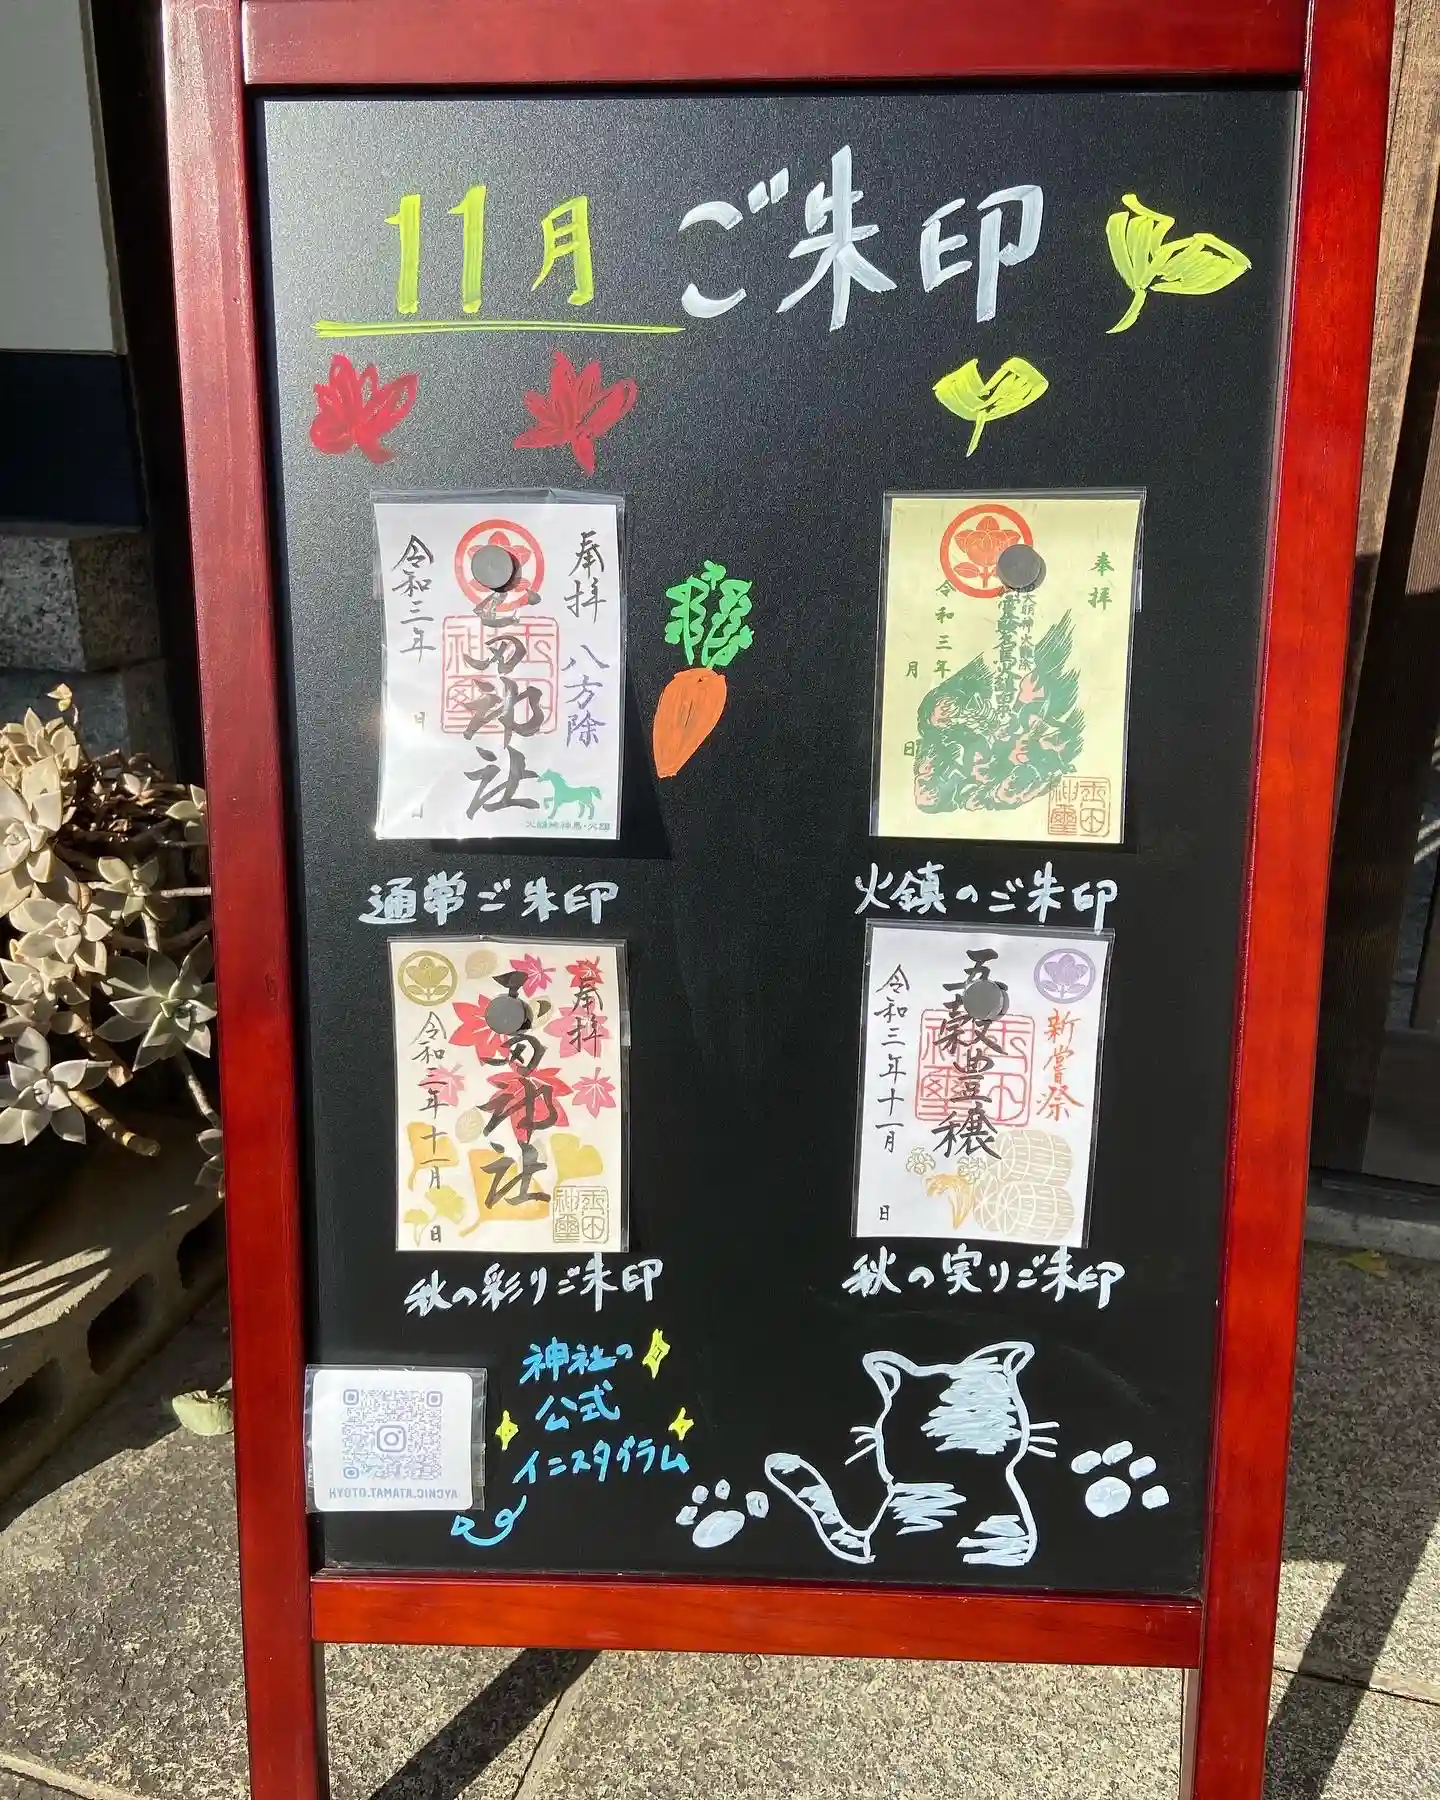 11月 ご朱印
奉拝
八方除
玉田神社
令和三年
月
日
奉拝
令和三年
月
日
通常ご朱印
火鎮のご朱印
奉拝
玉田神社
令和三年十一月
日
新嘗祭
五穀豊穣
令和三年十一月
日
秋の彩りご朱印
秋の実りご朱印
神社の
公式
インスタグラム
KYOTO.TAMATA.JINJYA